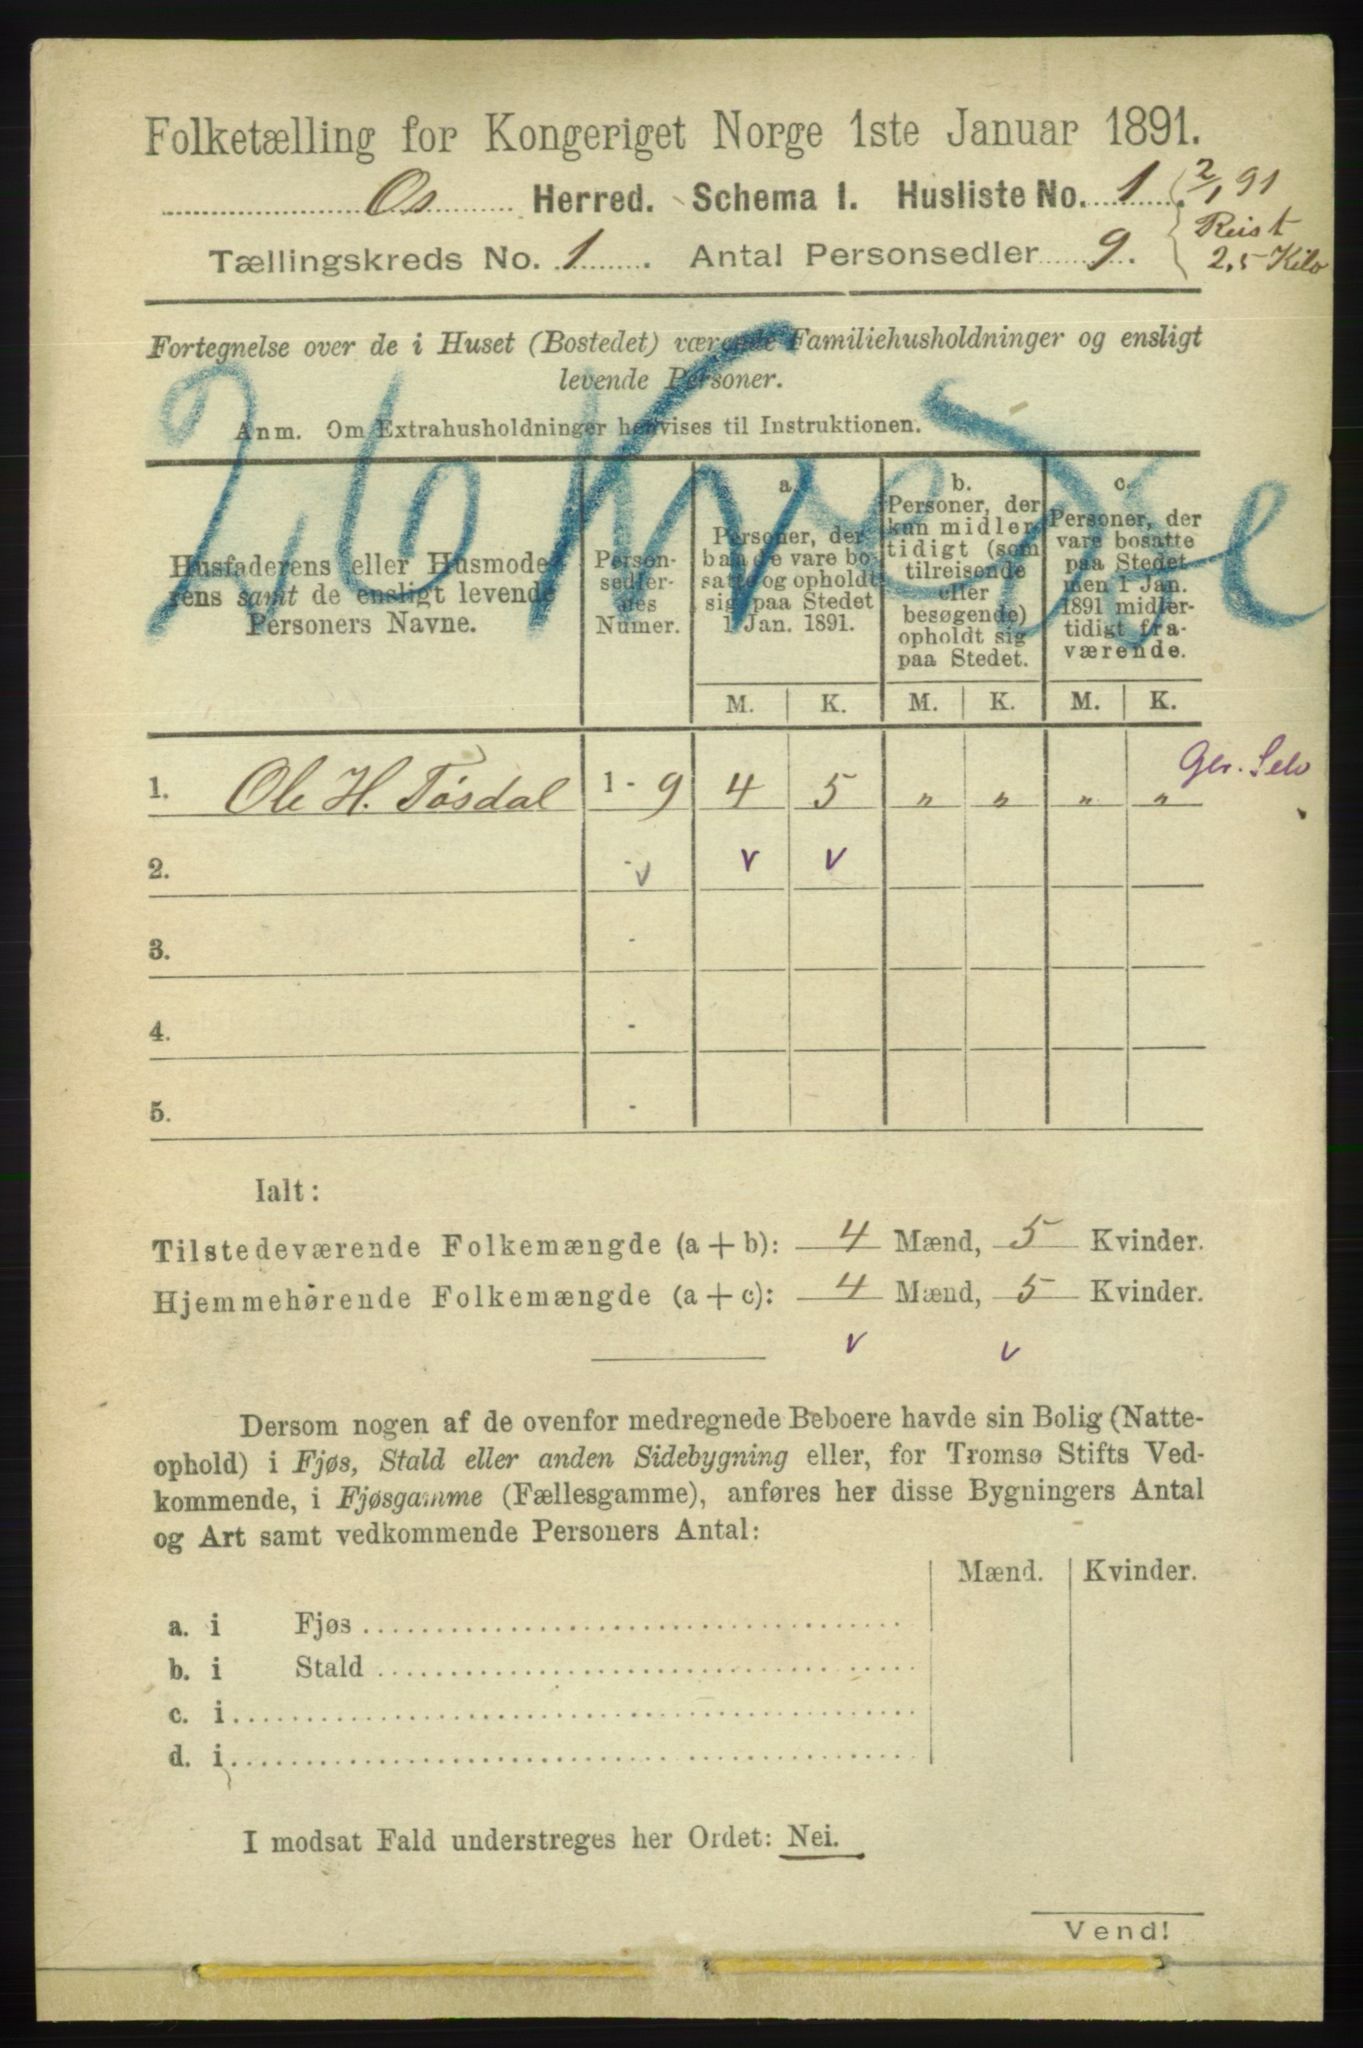 Folketælling for Kongeriget Norge 1ste Januar 1891.
Os Herred. Schema 1. Husliste No. 1. 2/1 91
Tællingskreds No. 1. Antal Personsedler 9. Reist 2,5 Kilo
Fortegnelse over de i Huset (Bostedet) værende Familiehusholdninger og ensligt
levende Personer.
Anm. Om Extrahusholdninger henvises til Instruktionen.
Husfaderens eller Husmode-
rens samt de ensligt levende
Personers Navne.
Person-
sedler-
nes
Numer.
a.
Personer, der
baade vare bo-
satte og opholdt
sig paa Stedet
1 Jan. 1891.
b.
Personer, der
kun midler-
tidigt (som
tilreisende
eller
besøgende)
opholdt sig
paa Stedet.
c.
Personer, der
vare bosatte
paa Stedet
men 1 Jan.
1891 midler-
tidigt fra-
værende.
M. K. M. K. M. K.
1. Ole H. Tøsdal 1 - 9 4 5 „ „ „ „
2. - v v v
3. -
4. -
5. -
Ialt:
Tilstedeværende Folkemængde (a + b): 4 Mænd, 5 Kvinder.
Hjemmehørende Folkemængde (a + c): 4 Mænd, 5 Kvinder.
v v
Dersom nogen af de ovenfor medregnede Beboere havde sin Bolig (Natte-
ophold) i Fjøs, Stald eller anden Sidebygning eller, for Tromsø Stifts Ved-
kommende, i Fjøsgamme (Fællesgamme), anføres her disse Bygningers Antal
og Art samt vedkommende Personers Antal:
Mænd. Kvinder.
a. i Fjøs
b. i Stald
c. i
d. i
I modsat Fald understreges her Ordet: Nei.
Vend!